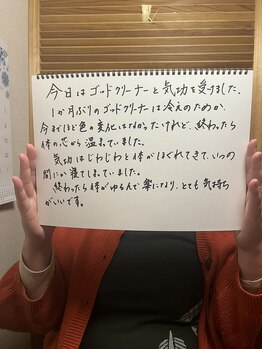 今日はゴッドクリーナーと気功を受けました。
1か月ぶりのゴッドクリーナーは冷えのためか、
今までほど色の変化はなかったけれど、終わったら
体の芯から温まっていました。
気功はじわじわと体がほぐれてきて、いつの
間にか寝てしまっていました。
終わったら体がゆるんで楽になり、とても気持ち
がいいです。